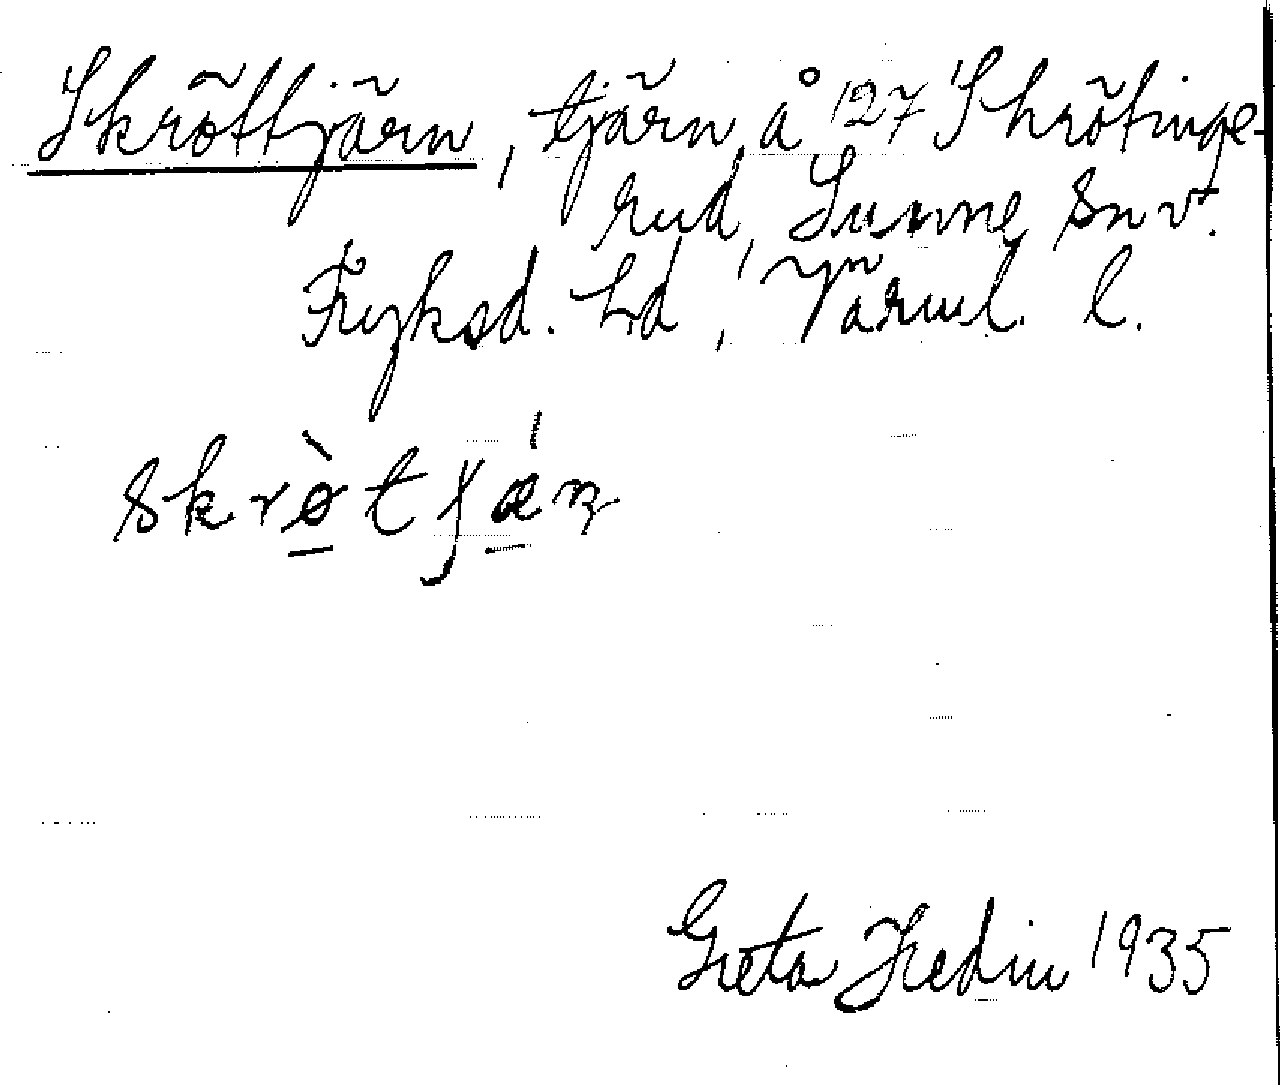 Skröttjärn, tjärn å 127 Skrötinge-
rud, Sunne snvt.
Fryksd. hd, Värml. l.
skrø̀tjǽn
Greta Hedin 1935